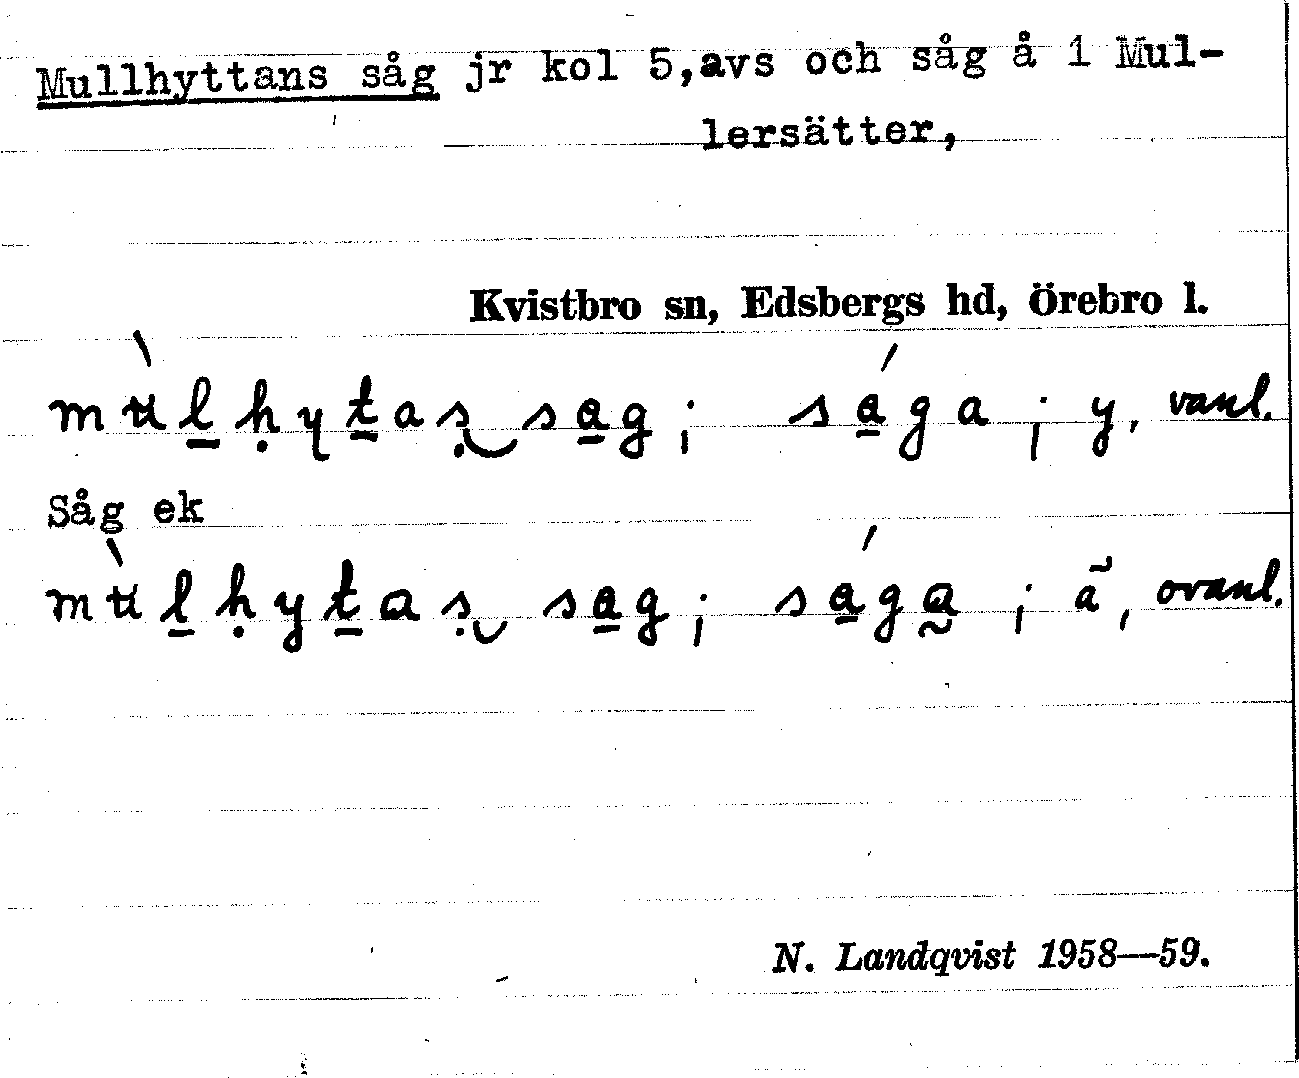 Mullhyttans såg jr kol 5,avs och såg å 1 Mul-
lersätter,
Kvistbro sn, Edsbergs hd, Örebro l.
mùl̲ḥyt̲aṣ‿sa̲g ; sá̲ga ; y, vanl.
Såg ek
mùl̲ḥyt̲aṣ‿sa̲g ; sá̲ga̰ ; ã, ovanl.
N. Landqvist 1958—59.